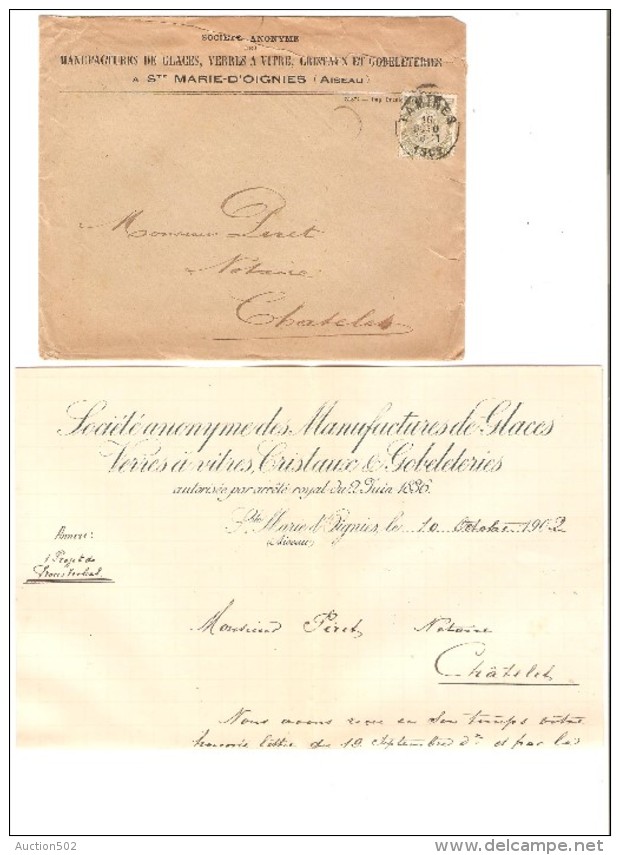 SOCIÉTÉ ANONYME
DES
MANUFACTURES DE GLACES, VERRES A VITRE, CRISTAUX ET GOBELETERIES
A STE MARIE-D'OIGNIES (AISEAU)
TAMINES
16
1902
Monsieur Piret
Notaire
Chatelet
Société anonyme des Manufactures de Glaces
Verres à vitres, Cristaux & Gobeleteries
autorisée par arrêté royal du 9 Juin 1836.
Ste Marie d'Oignies, le 10 Octobre 1902
(Aiseau)
Annexe:
1 Projet de
Monsieur Piret, Notaire
Châtelet
Nous avons reçu en son temps votre
honorée lettre du 19 Septembre dr et par la
Auction502
delcampe.net